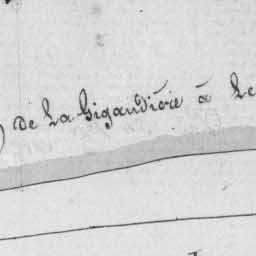 de la Gigandière à Le